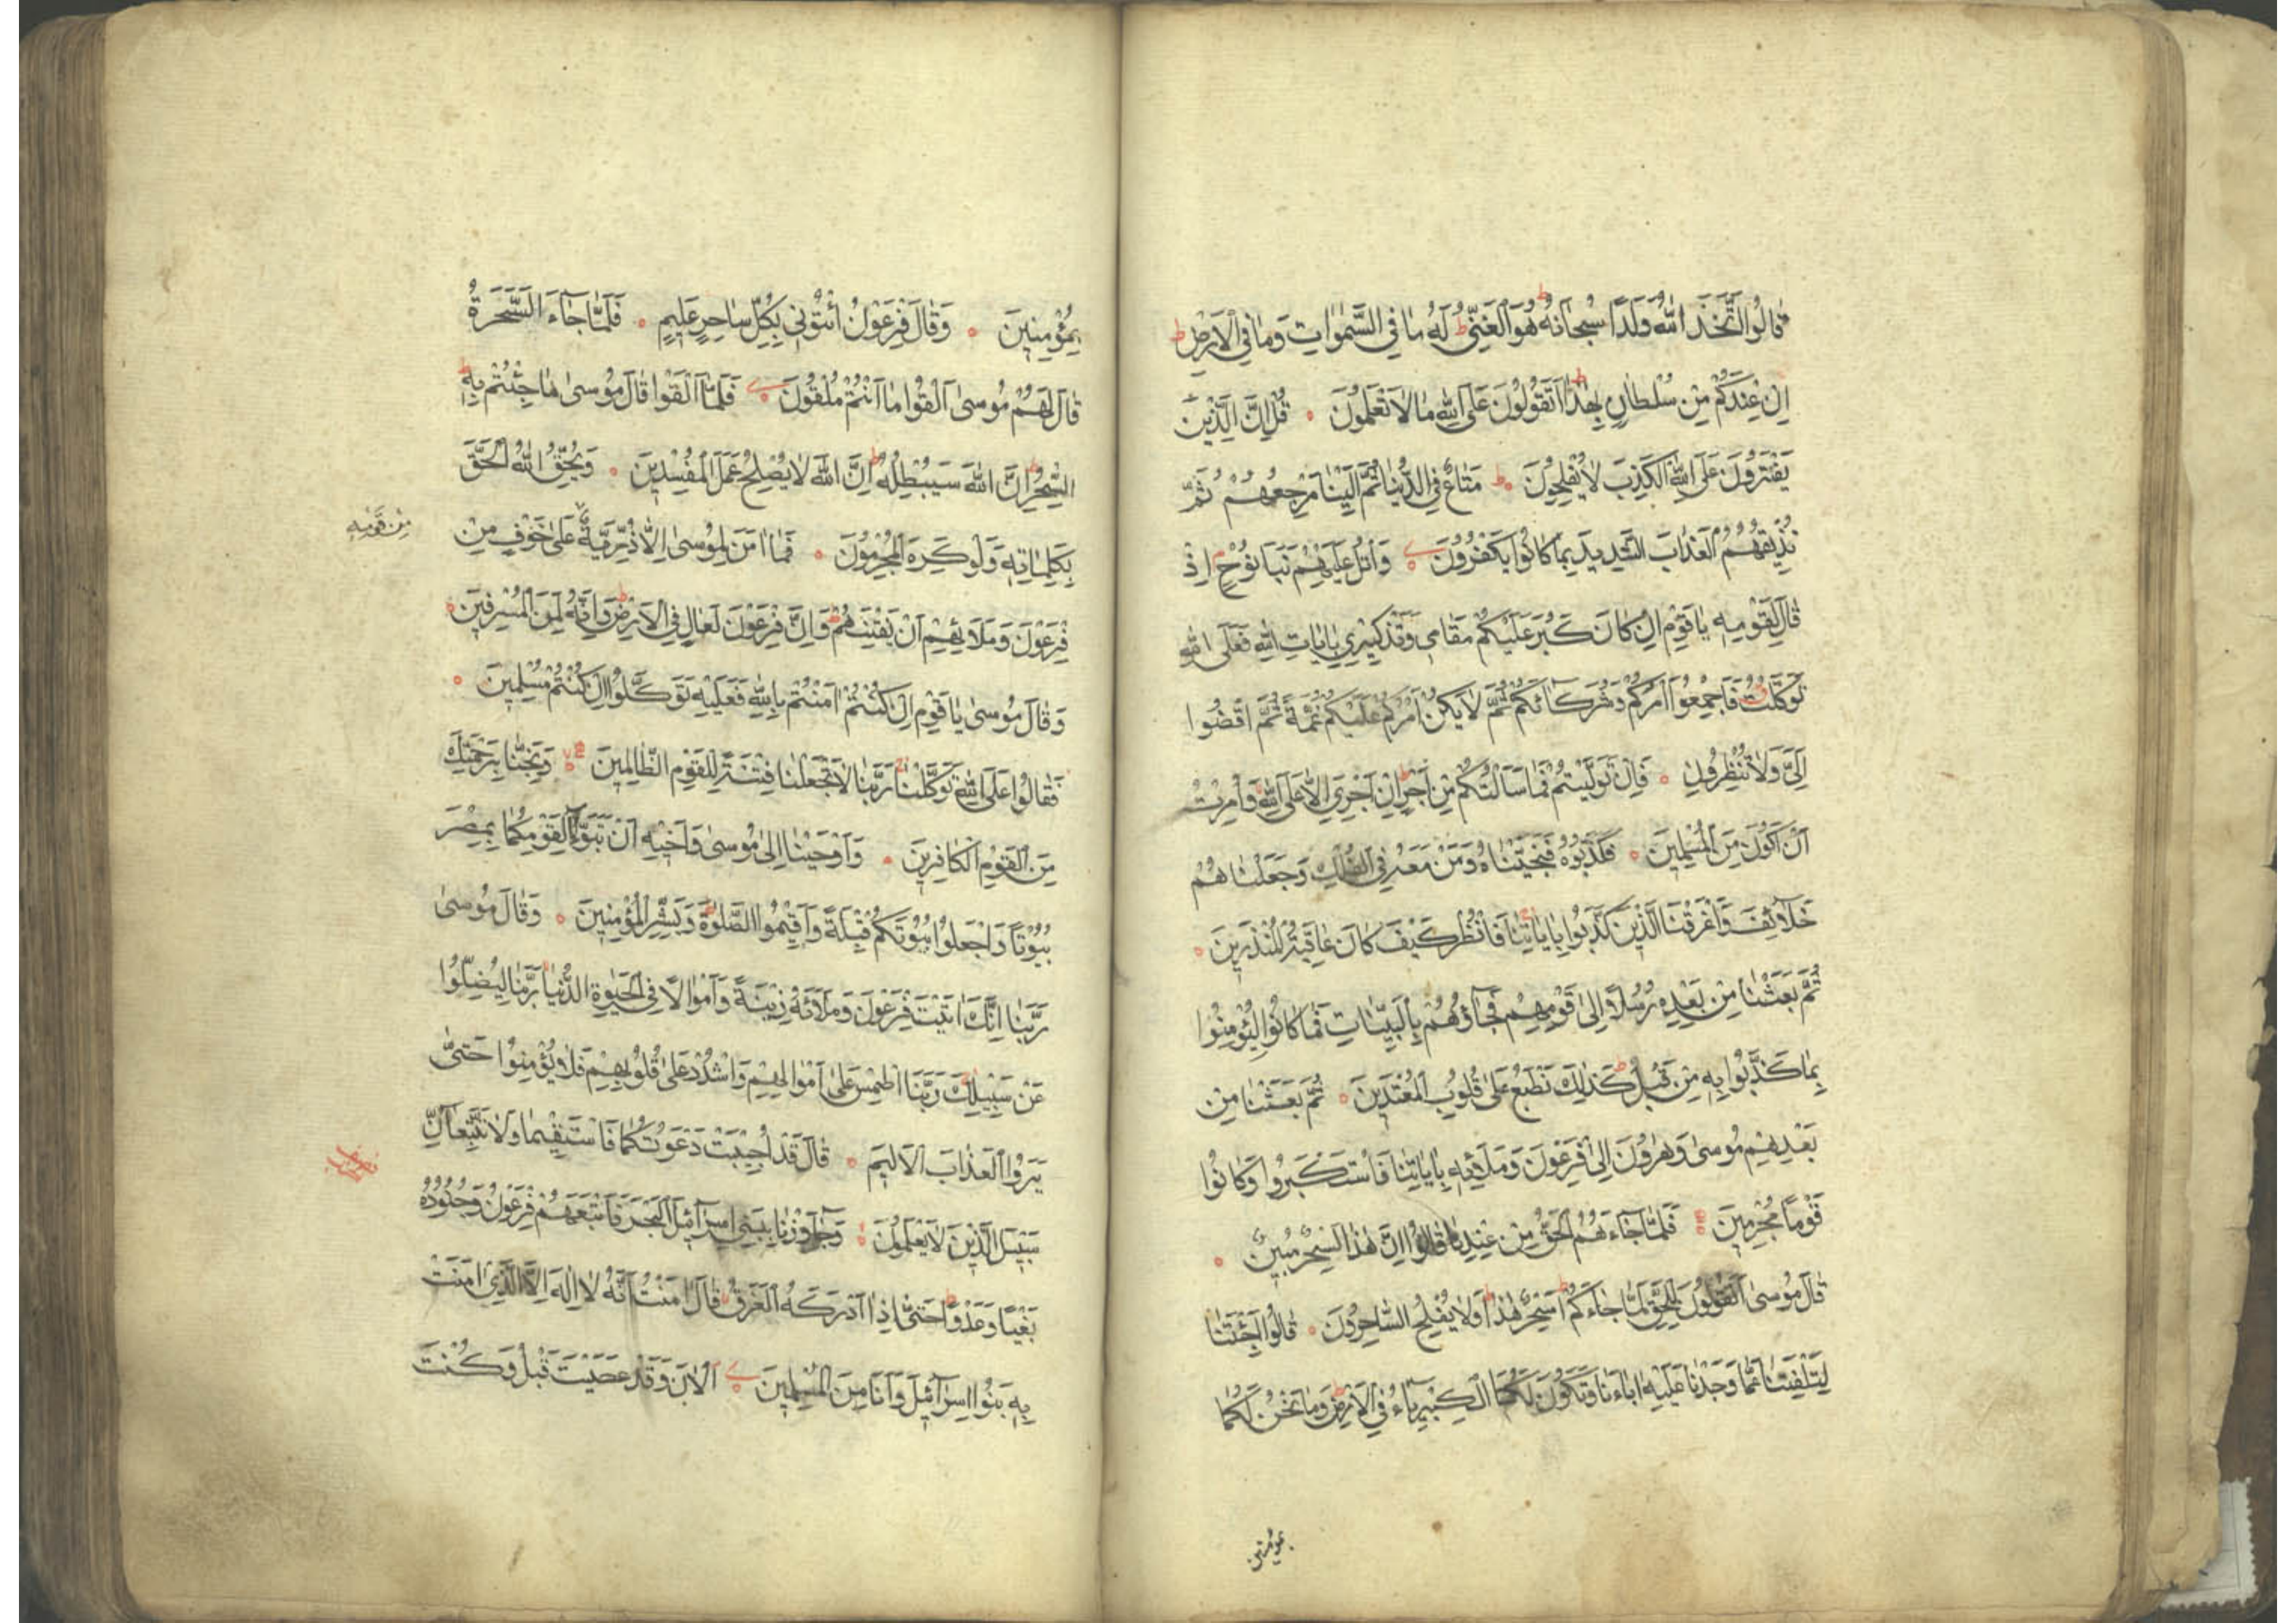 قَالُوا اتَّخَذَ اللّٰهُ وَلَدًا سُبْحَانَهُ ط هُوَ الْغَنِيُّ ط لَهُ مَا فِي السَّمٰوَاتِ وَمَا فِي الْاَرْضِ ط
اِنْ عِنْدَكُمْ مِنْ سُلْطَانٍ بِهٰذَا ط اَتَقُولُونَ عَلَى اللّٰهِ مَا لَا تَعْلَمُونَ ۰ قُلْ اِنَّ الَّذِينَ
يَفْتَرُونَ عَلَى اللّٰهِ الْكَذِبَ لَا يُفْلِحُونَ ۰ ط مَتَاعٌ فِي الدُّنْيَا ثُمَّ اِلَيْنَا مَرْجِعُهُمْ ثُمَّ
نُذِيقُهُمُ الْعَذَابَ الشَّدِيدَ بِمَا كَانُوا يَكْفُرُونَ ۰ وَاتْلُ عَلَيْهِمْ نَبَاَ نُوحٍ م اِذْ
قَالَ لِقَوْمِهِ يَا قَوْمِ اِنْ كَانَ كَبُرَ عَلَيْكُمْ مَقَامِي وَتَذْكِيرِي بِاٰيَاتِ اللّٰهِ فَعَلَى اللّٰهِ
تَوَكَّلْتُ فَاَجْمِعُوا اَمْرَكُمْ وَشُرَكَاءَكُمْ ثُمَّ لَا يَكُنْ اَمْرُكُمْ عَلَيْكُمْ غُمَّةً ثُمَّ اقْضُوا
اِلَيَّ وَلَا تُنْظِرُونِ ۰ فَاِنْ تَوَلَّيْتُمْ فَمَا سَاَلْتُكُمْ مِنْ اَجْرٍ ط اِنْ اَجْرِيَ اِلَّا عَلَى اللّٰهِ وَاُمِرْتُ
اَنْ اَكُونَ مِنَ الْمُسْلِمِينَ ۰ فَكَذَّبُوهُ فَنَجَّيْنَاهُ وَمَنْ مَعَهُ فِي الْفُلْكِ وَجَعَلْنَاهُمْ
خَلَائِفَ وَاَغْرَقْنَا الَّذِينَ كَذَّبُوا بِاٰيَاتِنَا فَانْظُرْ كَيْفَ كَانَ عَاقِبَةُ الْمُنْذَرِينَ ۰
ثُمَّ بَعَثْنَا مِنْ بَعْدِهِ رُسُلًا اِلٰى قَوْمِهِمْ فَجَاؤُهُمْ بِالْبَيِّنَاتِ فَمَا كَانُوا لِيُؤْمِنُوا
بِمَا كَذَّبُوا بِهِ مِنْ قَبْلُ ط كَذٰلِكَ نَطْبَعُ عَلٰى قُلُوبِ الْمُعْتَدِينَ ۰ ثُمَّ بَعَثْنَا مِنْ
بَعْدِهِمْ مُوسٰى وَهٰرُونَ اِلٰى فِرْعَوْنَ وَمَلَائِهِ بِاٰيَاتِنَا فَاسْتَكْبَرُوا وَكَانُوا
قَوْمًا مُجْرِمِينَ ۰ فَلَمَّا جَاءَهُمُ الْحَقُّ مِنْ عِنْدِنَا قَالُوا اِنَّ هٰذَا لَسِحْرٌ مُبِينٌ ۰
قَالَ مُوسٰى اَتَقُولُونَ لِلْحَقِّ لَمَّا جَاءَكُمْ ط اَسِحْرٌ هٰذَا ط وَلَا يُفْلِحُ السَّاحِرُونَ ۰ قَالُوا اَجِئْتَنَا
لِتَلْفِتَنَا عَمَّا وَجَدْنَا عَلَيْهِ اٰبَاءَنَا وَتَكُونَ لَكُمَا الْكِبْرِيَاءُ فِي الْاَرْضِ ط وَمَا نَحْنُ لَكُمَا
بمؤمنين
بِمُؤْمِنِينَ ۰ وَقَالَ فِرْعَوْنُ ائْتُونِي بِكُلِّ سَاحِرٍ عَلِيمٍ ۰ فَلَمَّا جَاءَ السَّحَرَةُ
قَالَ لَهُمْ مُوسٰى اَلْقُوا مَا اَنْتُمْ مُلْقُونَ ۰ فَلَمَّا اَلْقَوْا قَالَ مُوسٰى مَا جِئْتُمْ بِهِ ط
السِّحْرُ ط اِنَّ اللّٰهَ سَيُبْطِلُهُ ط اِنَّ اللّٰهَ لَا يُصْلِحُ عَمَلَ الْمُفْسِدِينَ ۰ وَيُحِقُّ اللّٰهُ الْحَقَّ
بِكَلِمَاتِهِ وَلَوْ كَرِهَ الْمُجْرِمُونَ ۰ فَمَا اٰمَنَ لِمُوسٰى اِلَّا ذُرِّيَّةٌ عَلٰى خَوْفٍ مِنْ
مِنْ قَوْمِهِ
فِرْعَوْنَ وَمَلَائِهِمْ اَنْ يَفْتِنَهُمْ ط وَاِنَّ فِرْعَوْنَ لَعَالٍ فِي الْاَرْضِ ط وَاِنَّهُ لَمِنَ الْمُسْرِفِينَ ۰
وَقَالَ مُوسٰى يَا قَوْمِ اِنْ كُنْتُمْ اٰمَنْتُمْ بِاللّٰهِ فَعَلَيْهِ تَوَكَّلُوا اِنْ كُنْتُمْ مُسْلِمِينَ ۰
فَقَالُوا عَلَى اللّٰهِ تَوَكَّلْنَا رَبَّنَا لَا تَجْعَلْنَا فِتْنَةً لِلْقَوْمِ الظَّالِمِينَ ۰ وَنَجِّنَا بِرَحْمَتِكَ
مِنَ الْقَوْمِ الْكَافِرِينَ ۰ وَاَوْحَيْنَا اِلٰى مُوسٰى وَاَخِيهِ اَنْ تَبَوَّاٰ لِقَوْمِكُمَا بِمِصْرَ
بُيُوتًا وَاجْعَلُوا بُيُوتَكُمْ قِبْلَةً وَاَقِيمُوا الصَّلٰوةَ ط وَبَشِّرِ الْمُؤْمِنِينَ ۰ وَقَالَ مُوسٰى
رَبَّنَا اِنَّكَ اٰتَيْتَ فِرْعَوْنَ وَمَلَاَهُ زِينَةً وَاَمْوَالًا فِي الْحَيٰوةِ الدُّنْيَا رَبَّنَا لِيُضِلُّوا
عَنْ سَبِيلِكَ رَبَّنَا اطْمِسْ عَلٰى اَمْوَالِهِمْ وَاشْدُدْ عَلٰى قُلُوبِهِمْ فَلَا يُؤْمِنُوا حَتّٰى
يَرَوُا الْعَذَابَ الْاَلِيمَ ۰ قَالَ قَدْ اُجِيبَتْ دَعْوَتُكُمَا فَاسْتَقِيمَا وَلَا تَتَّبِعَانِّ
سَبِيلَ الَّذِينَ لَا يَعْلَمُونَ ۰ وَجَاوَزْنَا بِبَنِي اِسْرَائِيلَ الْبَحْرَ فَاَتْبَعَهُمْ فِرْعَوْنُ وَجُنُودُهُ
بَغْيًا وَعَدْوًا ط حَتّٰى اِذَا اَدْرَكَهُ الْغَرَقُ قَالَ اٰمَنْتُ اَنَّهُ لَا اِلٰهَ اِلَّا الَّذِي اٰمَنَتْ
بِهِ بَنُوا اِسْرَائِيلَ وَاَنَا مِنَ الْمُسْلِمِينَ ۰ اٰلْاٰنَ وَقَدْ عَصَيْتَ قَبْلُ وَكُنْتَ